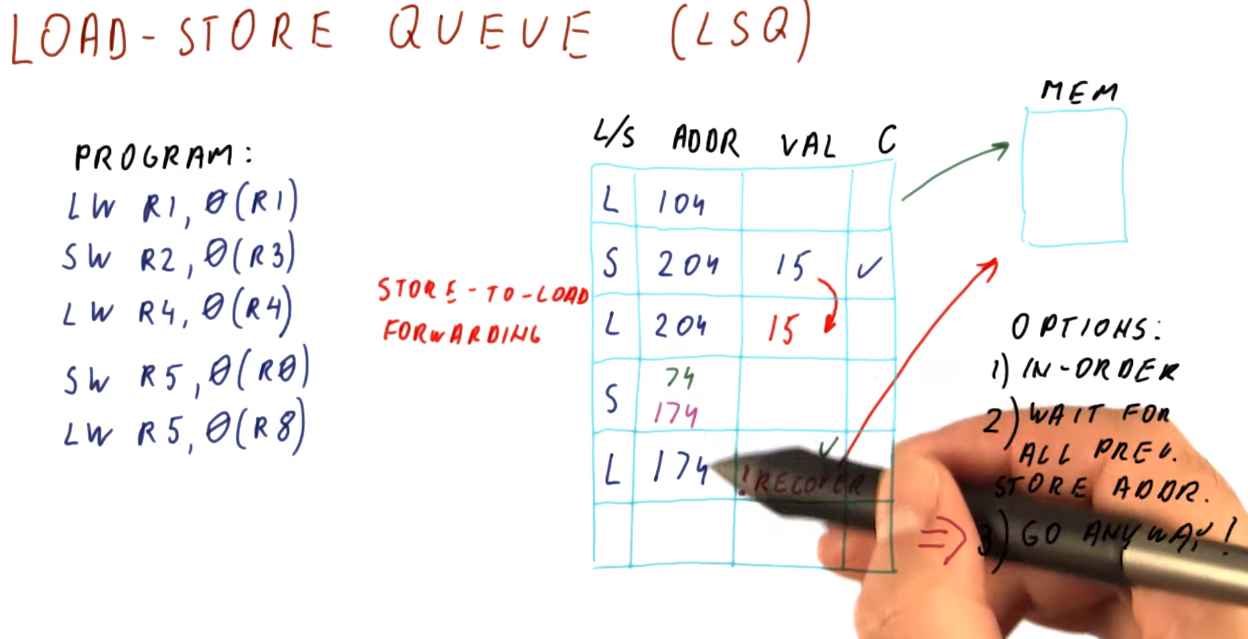 LOAD-STORE QUEUE (LSQ)
PROGRAM:
LW R1, 0(R1)
SW R2, 0(R3)
LW R4, 0(R4)
SW R5, 0(R0)
LW R5, 0(R8)
STORE-TO-LOAD
FORWARDING
L/S ADDR VAL C
L 104
S 204 15 ✓
L 204 15
S 74
174
L 174 ! RECOVER ✓
MEM
OPTIONS:
1) IN-ORDER
2) WAIT FOR
ALL PREV.
STORE ADDR.
⇒ 3) GO ANYWAY!